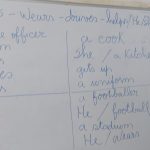 - Wears - drives - helps / He / S
e officer
a cook.
She / a kitchen
gets up
a uniform
a footballer
He / football
a stadium
He / wears